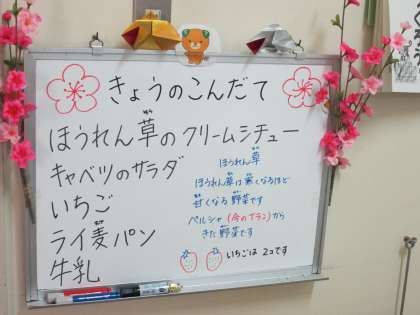 きょうのこんだて
ほうれん草のクリームシチュー
キャベツのサラダ
いちご
ライ麦パン
牛乳
ほうれん草
ほうれん草は寒くなるほど
甘くなる野菜です
ペルシャ(今のイラン)から
きた野菜です
いちごは2コです